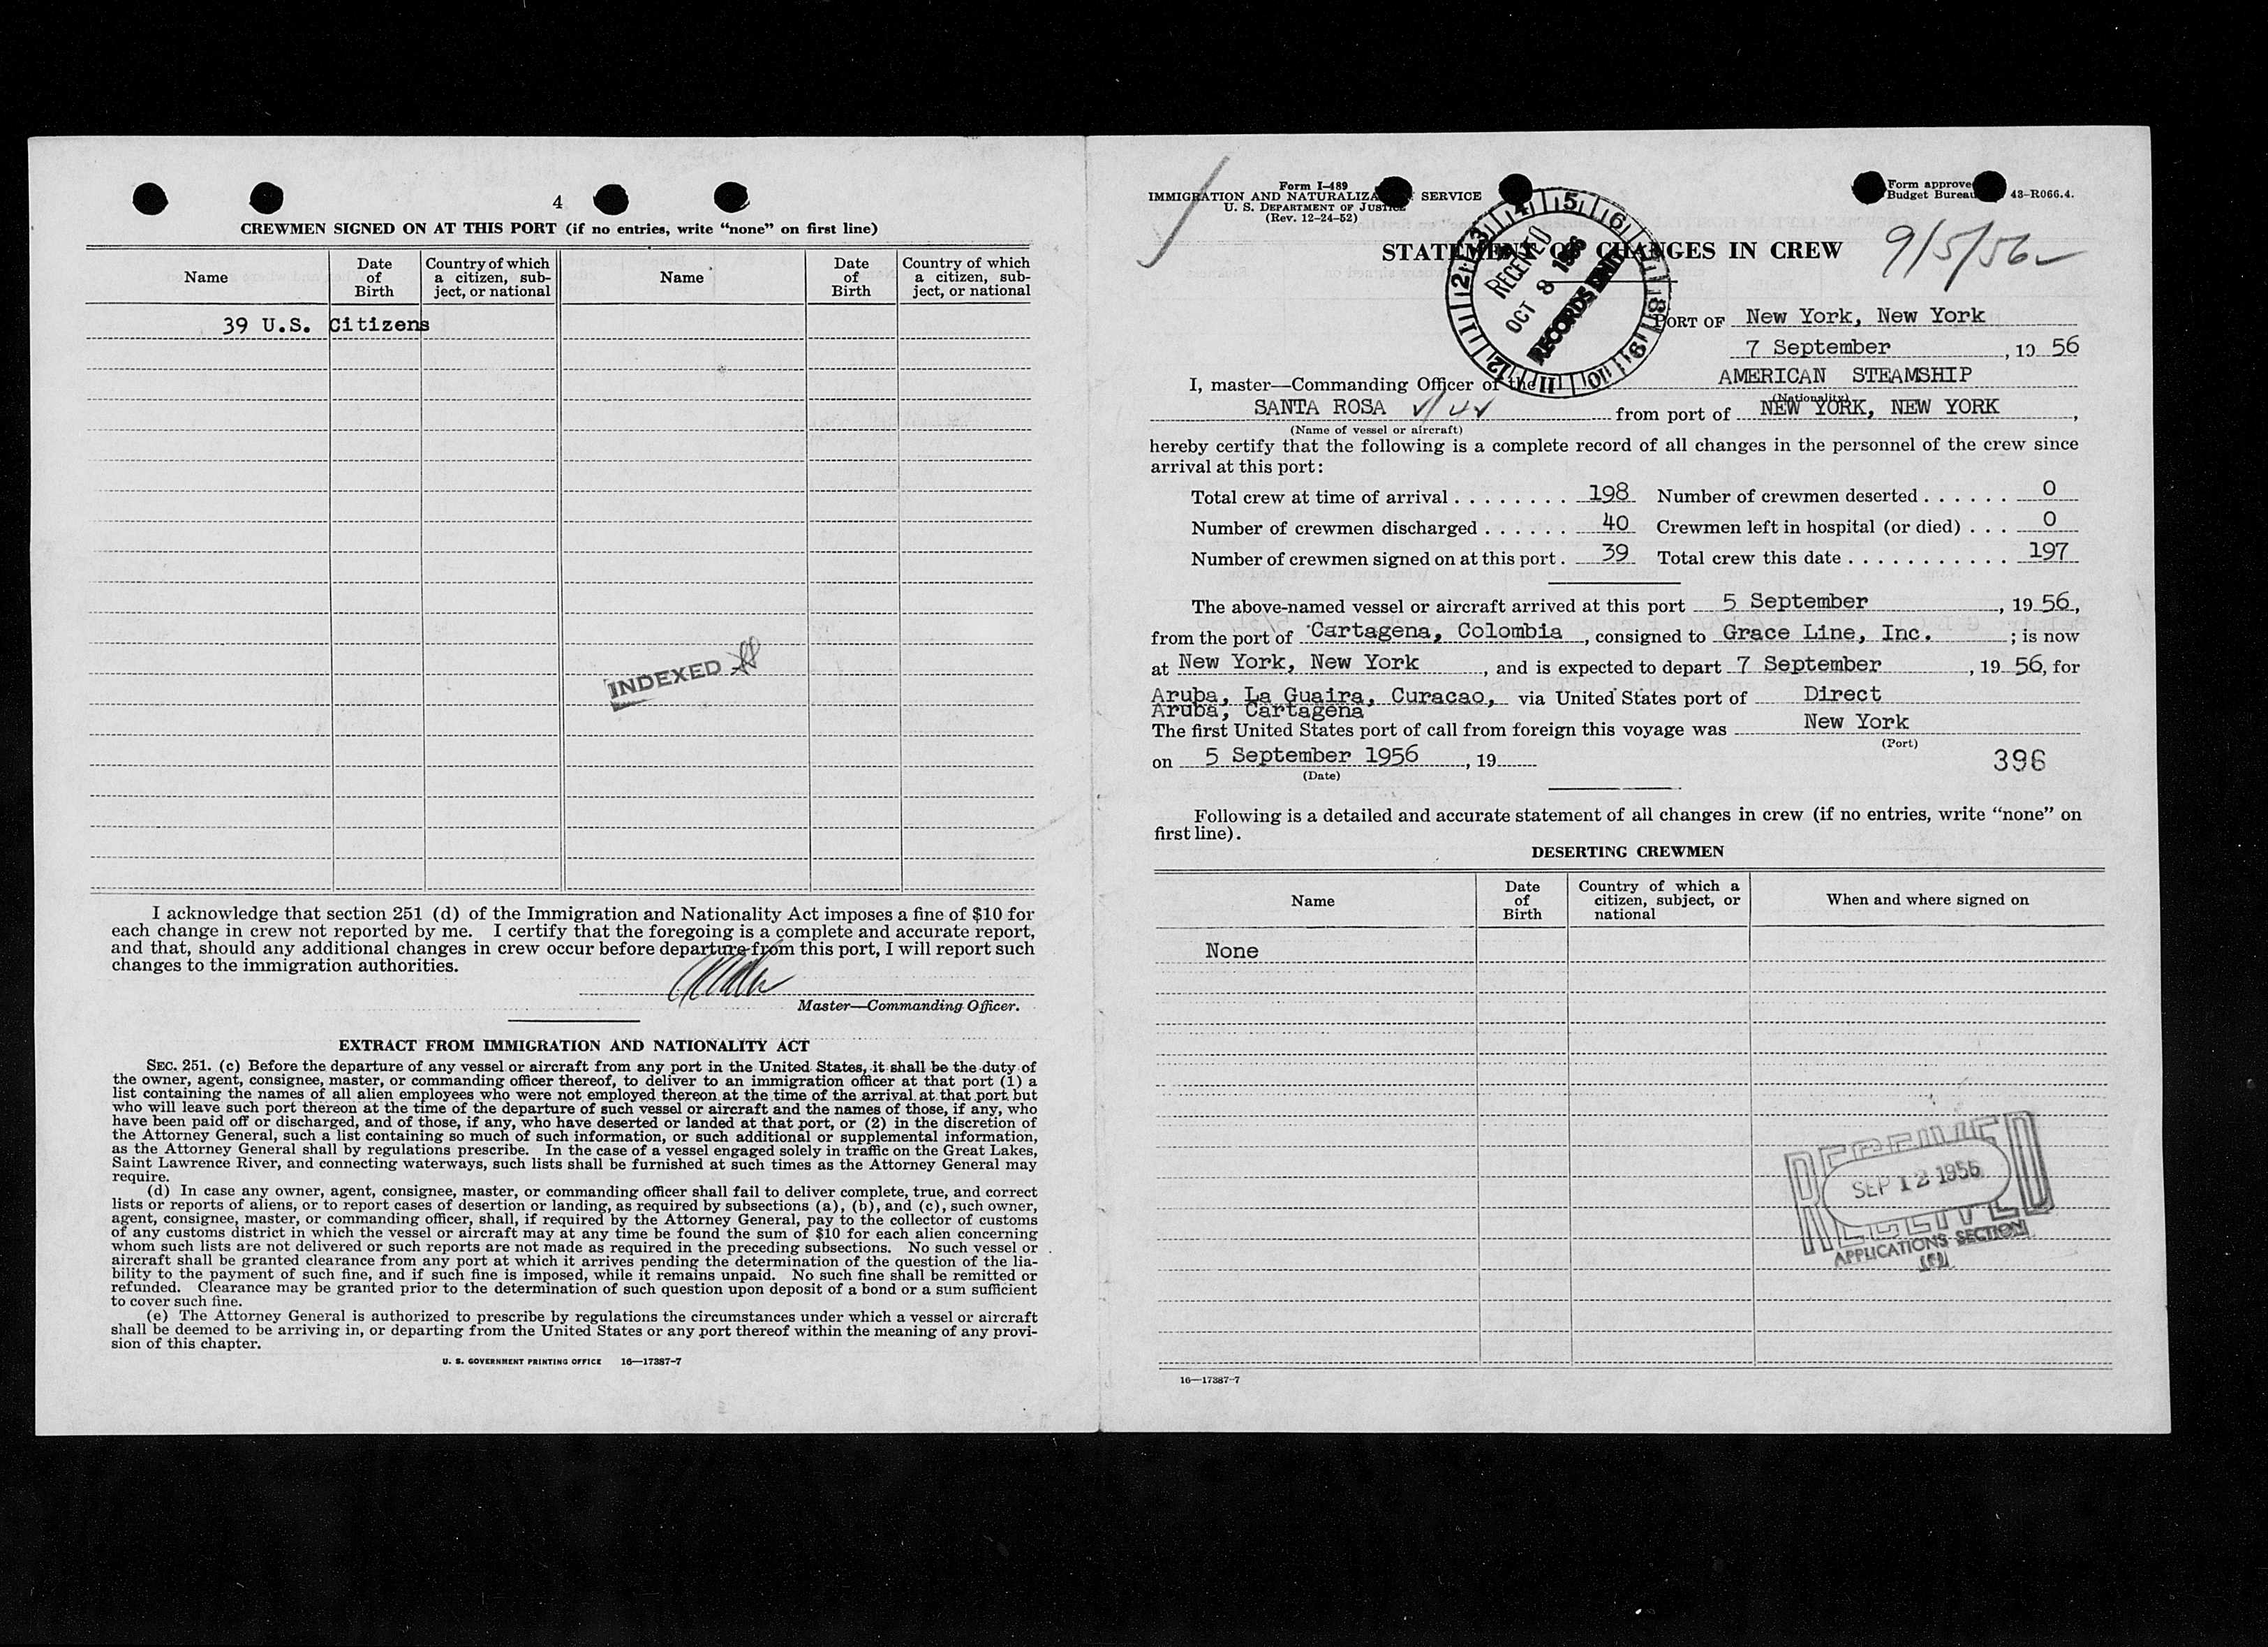 4
CREWMEN SIGNED ON AT THIS PORT (if no entries, write “none” on first line)
Name
Date of Birth
Country of which a citizen, subject, or national
Name
Date of Birth
Country of which a citizen, subject, or national
39 U.S. Citizens
INDEXED
I acknowledge that section 251 (d) of the Immigration and Nationality Act imposes a fine of $10 for
each change in crew not reported by me. I certify that the foregoing is a complete and accurate report,
and that, should any additional changes in crew occur before departure from this port, I will report such
changes to the immigration authorities.
Master—Commanding Officer.
EXTRACT FROM IMMIGRATION AND NATIONALITY ACT
SEC. 251. (c) Before the departure of any vessel or aircraft from any port in the United States, it shall be the duty of
the owner, agent, consignee, master, or commanding officer thereof, to deliver to an immigration officer at that port (1) a
list containing the names of all alien employees who were not employed thereon at the time of the arrival at that port but
who will leave such port thereon at the time of the departure of such vessel or aircraft and the names of those, if any, who
have been paid off or discharged, and of those, if any, who have deserted or landed at that port, or (2) in the discretion of
the Attorney General, such a list containing so much of such information, or such additional or supplemental information,
as the Attorney General shall by regulations prescribe. In the case of a vessel engaged solely in traffic on the Great Lakes,
Saint Lawrence River, and connecting waterways, such lists shall be furnished at such times as the Attorney General may
require.
(d) In case any owner, agent, consignee, master, or commanding officer shall fail to deliver complete, true, and correct
lists or reports of aliens, or to report cases of desertion or landing, as required by subsections (a), (b), and (c), such owner,
agent, consignee, master, or commanding officer, shall, if required by the Attorney General, pay to the collector of customs
of any customs district in which the vessel or aircraft may at any time be found the sum of $10 for each alien concerning
whom such lists are not delivered or such reports are not made as required in the preceding subsections. No such vessel or
aircraft shall be granted clearance from any port at which it arrives pending the determination of the question of the lia-
bility to the payment of such fine, and if such fine is imposed, while it remains unpaid. No such fine shall be remitted or
refunded. Clearance may be granted prior to the determination of such question upon deposit of a bond or a sum sufficient
to cover such fine.
(e) The Attorney General is authorized to prescribe by regulations the circumstances under which a vessel or aircraft
shall be deemed to be arriving in, or departing from the United States or any port thereof within the meaning of any provi-
sion of this chapter.
U. S. GOVERNMENT PRINTING OFFICE 16—17387-7
Form I-489
IMMIGRATION AND NATURALIZA SERVICE
U. S. DEPARTMENT OF JUSTICE
(Rev. 12-24-52)
Form approve
Budget Bureau 43-R066.4.
STATEMENT OF CHANGES IN CREW
9/5/56
RECEIVED
OCT 8 1956
RECORDS UNIT
1 2 3 4 5 6 7 8 9 10 11 12
PORT OF New York, New York
7 September, 19 56
I, master—Commanding Officer of the AMERICAN STEAMSHIP
(Nationality)
SANTA ROSA from port of NEW YORK, NEW YORK,
(Name of vessel or aircraft)
hereby certify that the following is a complete record of all changes in the personnel of the crew since
arrival at this port:
Total crew at time of arrival . . . . . . . . 198 Number of crewmen deserted . . . . . . 0
Number of crewmen discharged . . . . . . 40 Crewmen left in hospital (or died) . . . 0
Number of crewmen signed on at this port . 39 Total crew this date . . . . . . . . . . . 197
The above-named vessel or aircraft arrived at this port 5 September, 19 56,
from the port of Cartagena, Colombia, consigned to Grace Line, Inc. ; is now
at New York, New York, and is expected to depart 7 September, 19 56, for
Aruba, La Guaira, Curacao, via United States port of Direct
Aruba, Cartagena
The first United States port of call from foreign this voyage was New York
(Port)
on 5 September 1956, 19
(Date)
396
Following is a detailed and accurate statement of all changes in crew (if no entries, write “none” on
first line).
DESERTING CREWMEN
Name
Date of Birth
Country of which a citizen, subject, or national
When and where signed on
None
RECEIVED
SEP 12 1956
RECEIVED
APPLICATIONS SECTION
16—17387-7